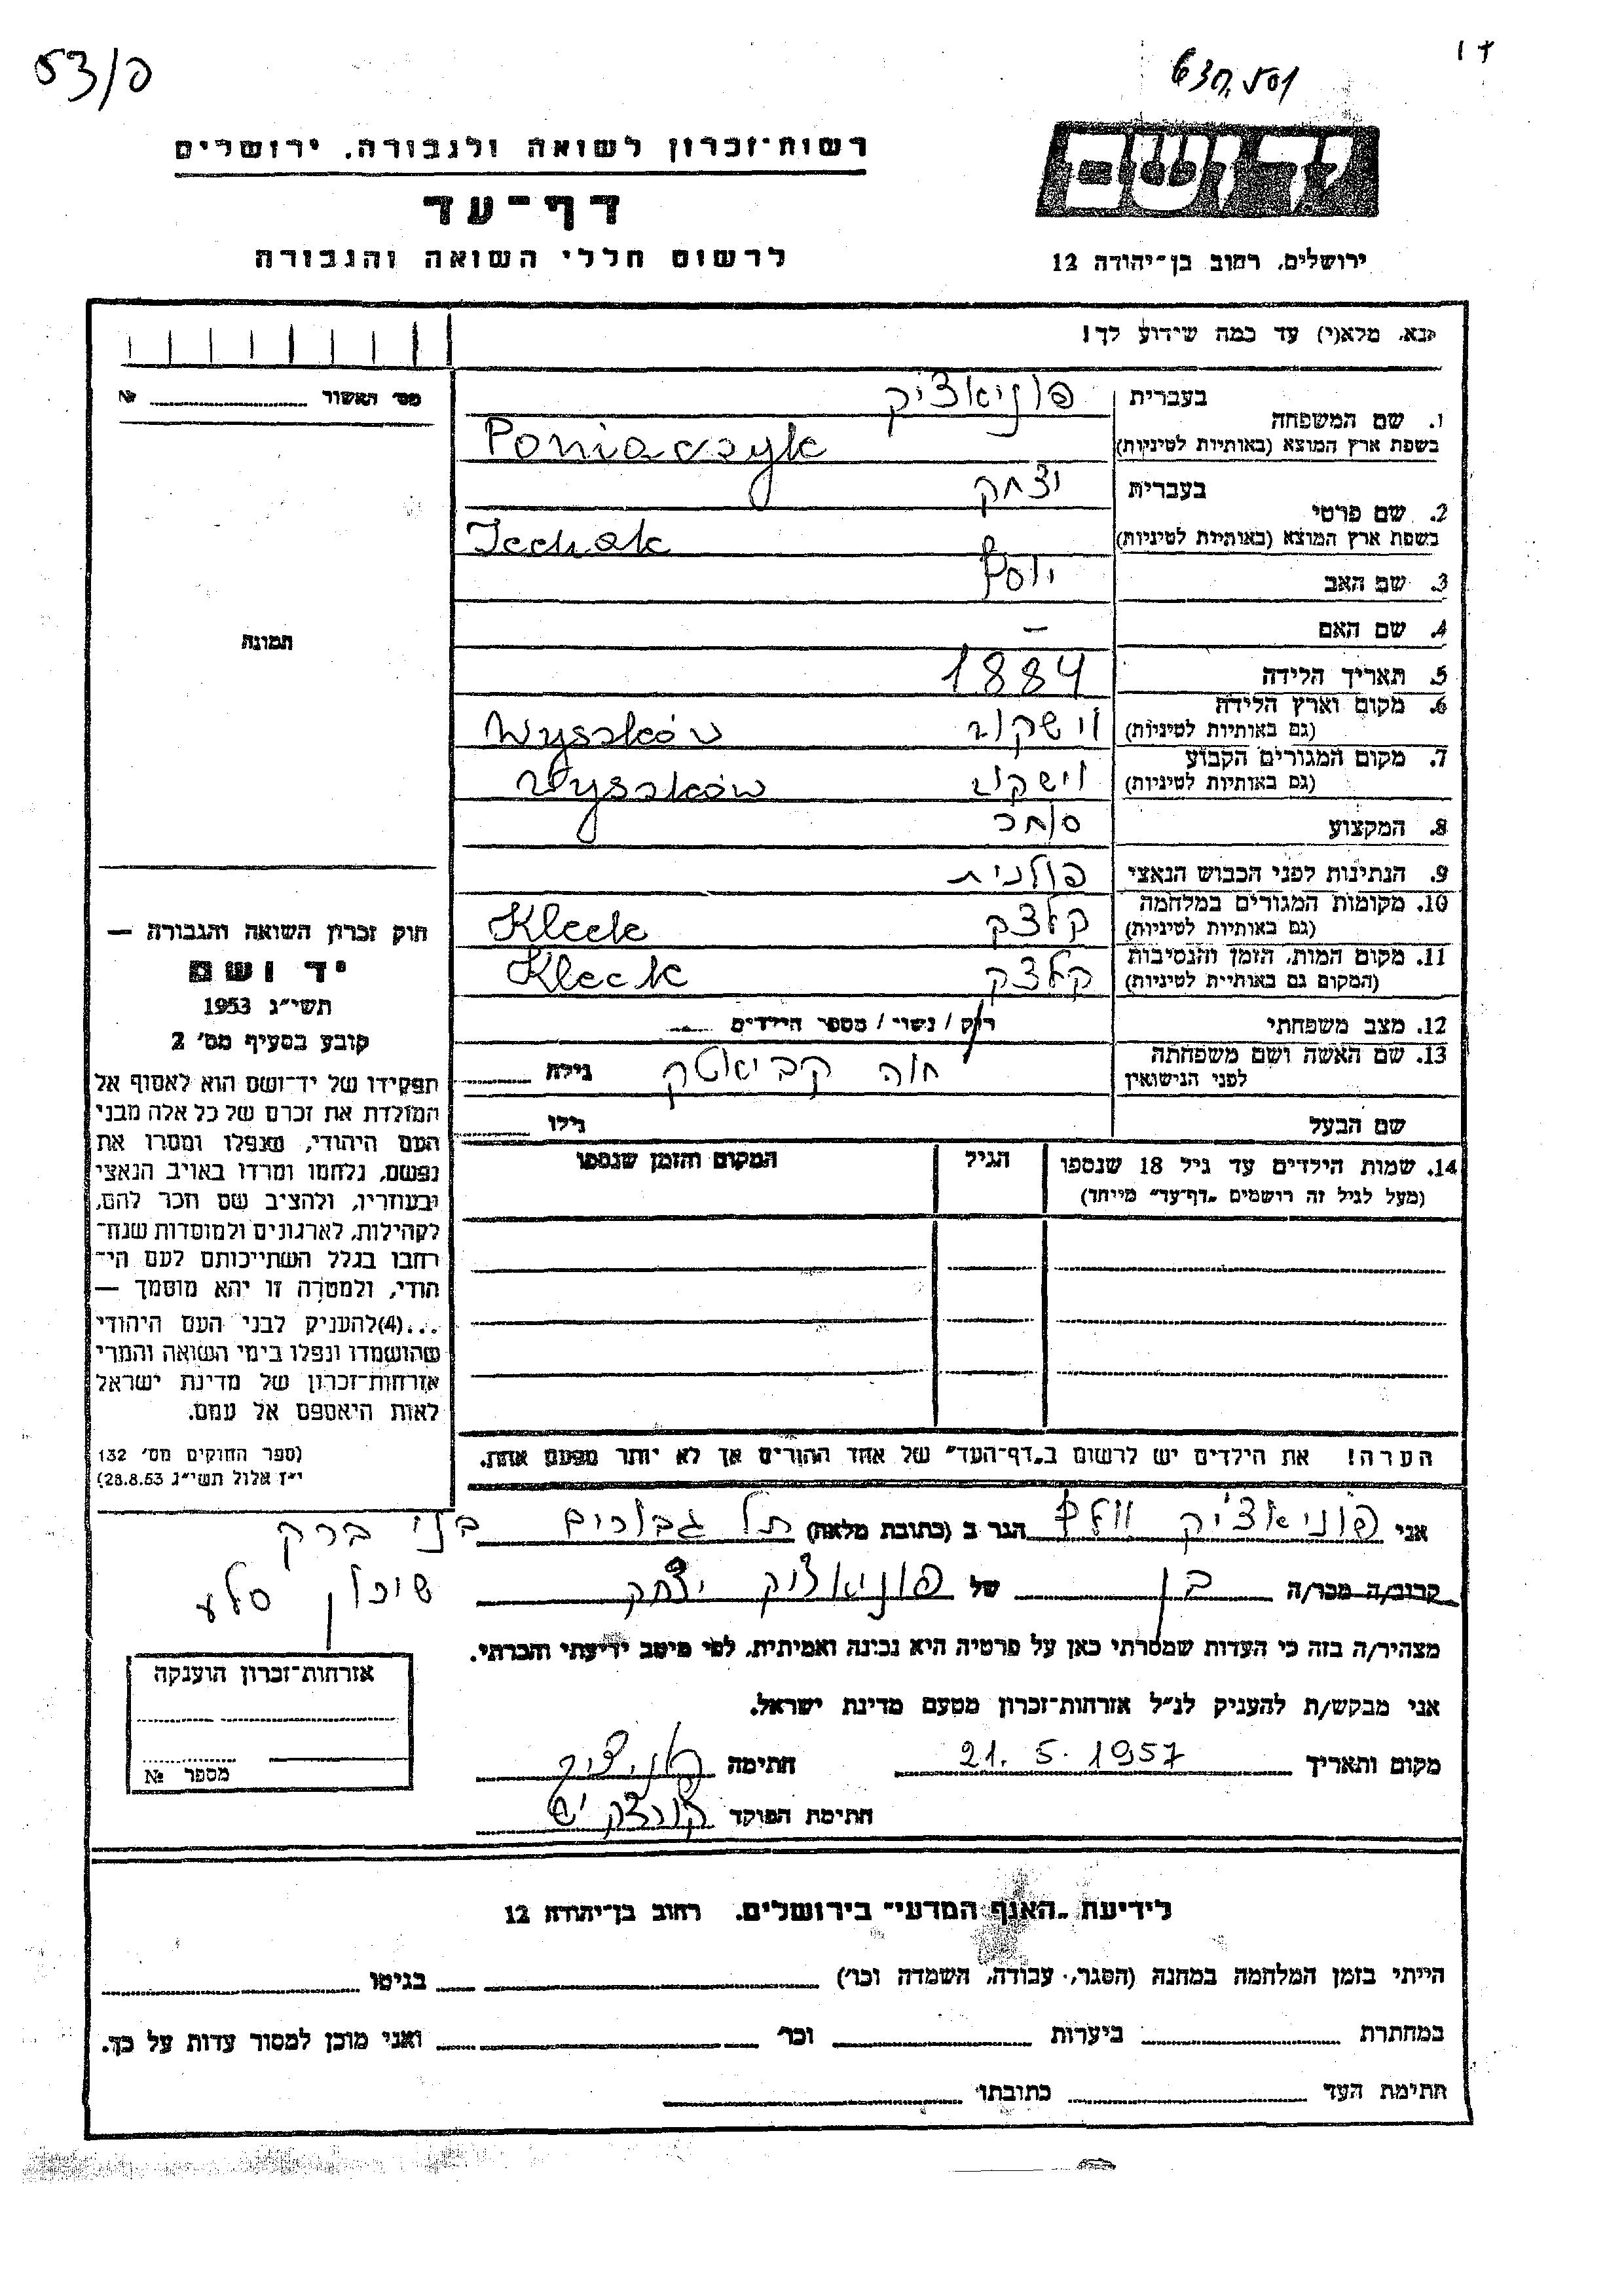 53/פ
630,501
רשות־זכרון לשואה ולגבורה, ירושלים
דף־עד
לרשום חללי השואה והגבורה
יד ושם
ירושלים, רחוב בן־יהודה 12
נא, מלא(י) עד כמה שידוע לך!
מס׳ האשור № 
1. שם המשפחה
בעברית פוניאצ׳יק
בשפת ארץ המוצא (באותיות לטיניות) Poniaczyk
2. שם פרטי
בעברית יצחק
בשפת ארץ המוצא (באותיות לטיניות) Icchak
3. שם האב יוסף
4. שם האם –
5. תאריך הלידה 1884
6. מקום וארץ הלידה
(גם באותיות לטיניות) וישקוב Wyszków
7. מקום המגורים הקבוע
(גם באותיות לטיניות) וישקוב Wyszków
8. המקצוע סוחר
9. הנתינות לפני הכבוש הנאצי פולנית
10. מקומות המגורים במלחמה
(גם באותיות לטיניות) קלצק Kleck
11. מקום המות, הזמן והנסיבות
(המקום גם באותיות לטיניות) קלצק Kleck
12. מצב משפחתי רוק / נשוי / מספר הילדים
13. שם האשה ושם משפחתה
לפני הנישואין חוה גילה
שם הבעל גילו
14. שמות הילדים עד גיל 18 שנספו הגיל המקום והזמן שנספו
(מעל לגיל זה רושמים „דף־עד״ מייחד)
הערה! את הילדים יש לרשום ב„דף־העד״ של אחד ההורים אך לא יותר מפעם אחת.
תמונה
חוק זכרון השואה והגבורה —
יד ושם
תשי״ג 1953
קובע בסעיף מס׳ 2
תפקידו של יד־ושם הוא לאסוף אל
המולדת את זכרם של כל אלה מבני
העם היהודי, שנפלו ומסרו את
נפשם, נלחמו ומרדו באויב הנאצי
ובעוזריו, ולהציב שם וזכר להם,
לקהילות, לארגונים ולמוסדות שנח־
רבו בגלל השתייכותם לעם הי־
הודי, ולמטרה זו יהא מוסמך —
...(4)להעניק לבני העם היהודי
שהושמדו ונפלו בימי השואה והמרי
אזרחות־זכרון של מדינת ישראל
לאות היאספם אל עמם.
(ספר החוקים מס׳ 132
י״ז אלול תשי״ג 28.8.53)
אני פוניאצ׳יק וולף הגר ב (כתובת מלאה) תל גבורים בני ברק
שיכון סלע
קרוב/ה מכר/ה בן של פוניאציק יצחק
מצהיר/ה בזה כי העדות שמסרתי כאן על פרטיה היא נכונה ואמיתית, לפי מיטב ידיעתי והכרתי.
אני מבקש/ת להעניק לנ״ל אזרחות־זכרון מטעם מדינת ישראל.
מקום ותאריך 21. 5. 1957 חתימה
חתימת הפוקד
אזרחות־זכרון הוענקה
מספר №
לידיעת „האגף המדעי״ בירושלים. רחוב בן־יהודה 12
הייתי בזמן המלחמה במחנה (הסגר, עבודה, השמדה וכו׳) בגיטו
במחתרת ביערות וכו׳ ואני מוכן למסור עדות על כך.
חתימת העד כתובתו